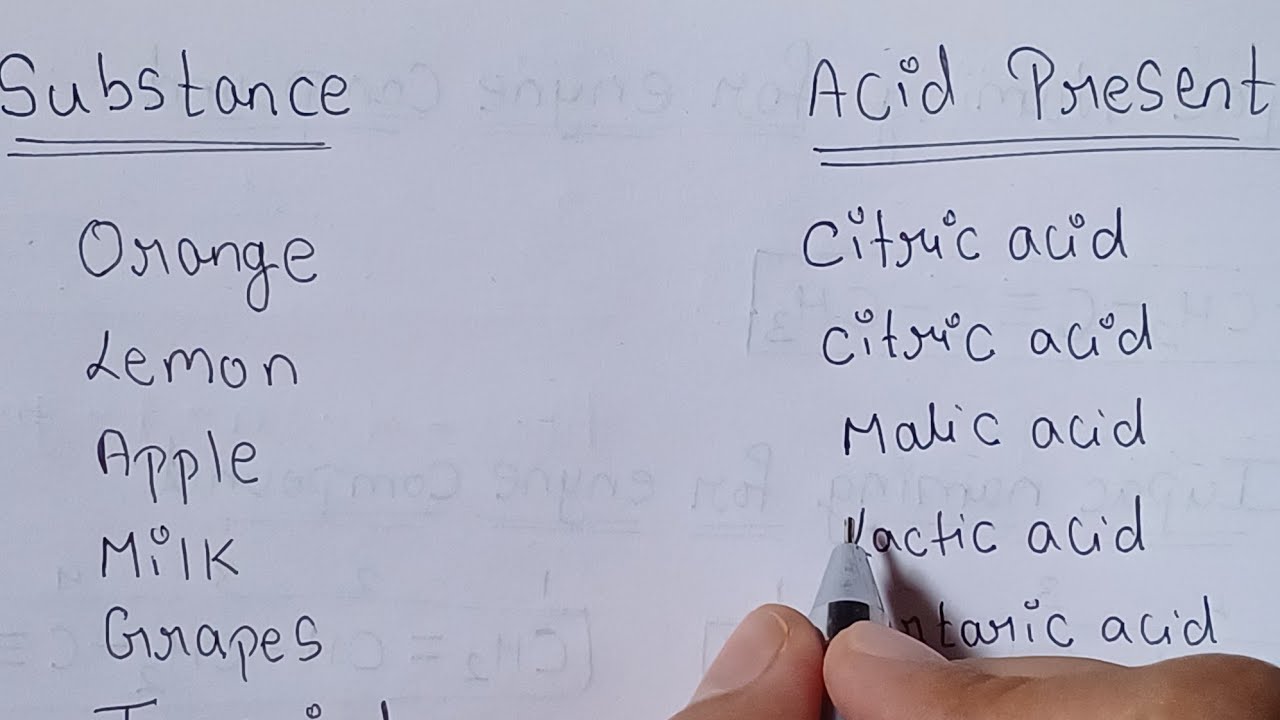 Substance Acid Present
Orange Citric acid
Lemon Citric acid
Apple Malic acid
Milk Lactic acid
Grapes acid